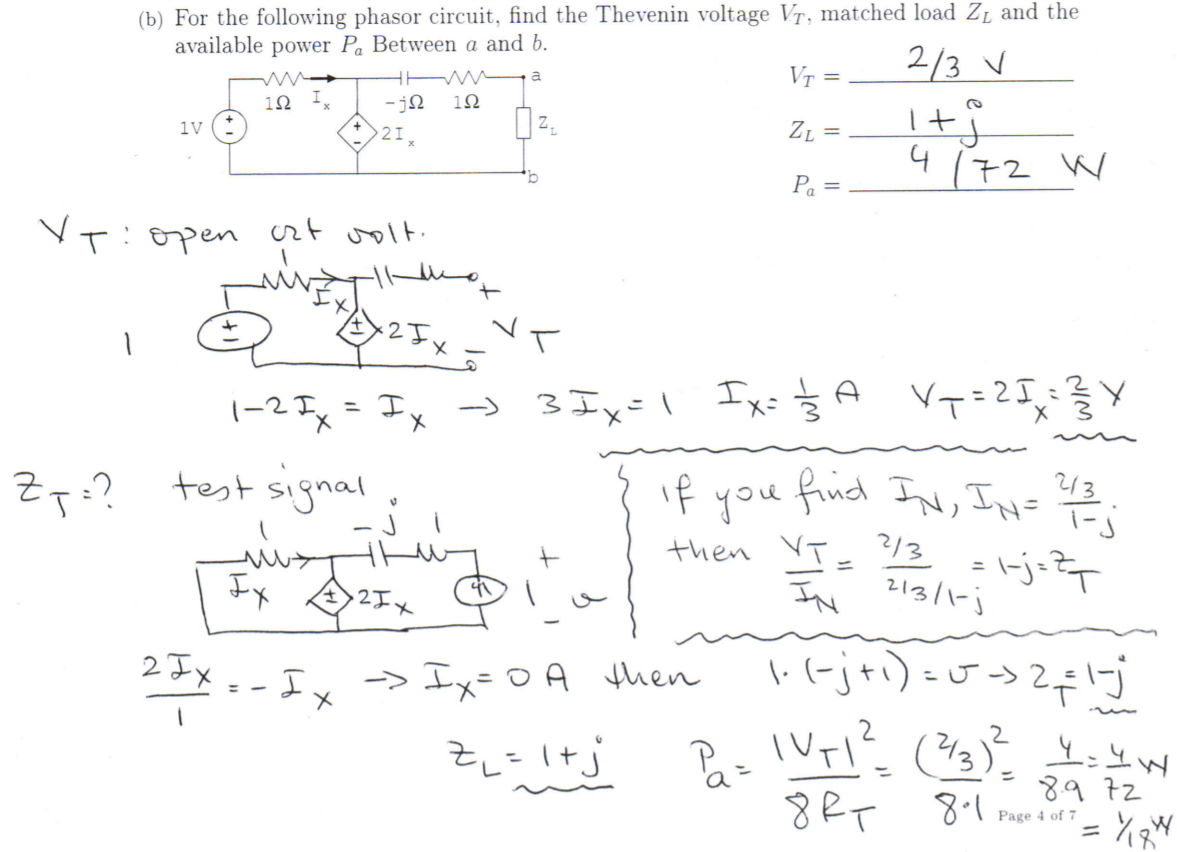 (b) For the following phasor circuit, find the Thevenin voltage V_T, matched load Z_L and the
available power P_a Between a and b.
V_T = 2/3 V
Z_L = 1+j
P_a = 4/72 W
1Ω I_x -jΩ 1Ω a
1V + - + - 2I_x Z_L
b
V_T: open crt volt.
1 I_x + - 2I_x + V_T -
1
1-2I_x = I_x → 3I_x=1 I_x= 1/3 A V_T=2I_x= 2/3 V
Z_T=? test signal
1 -j 1
I_x + - 2I_x 1 + v -
if you find I_N, I_N= (2/3)/(1-j)
then V_T/I_N = (2/3)/(2/3/1-j) = 1-j=Z_T
2I_x/1 = -I_x → I_x=0 A then 1·(-j+1)=v → Z_T=1-j
Z_L=1+j P_a= |V_T|²/8R_T = (2/3)²/8·1 = 4/8·9 = 4/72 W
= 1/18 W
Page 4 of 7